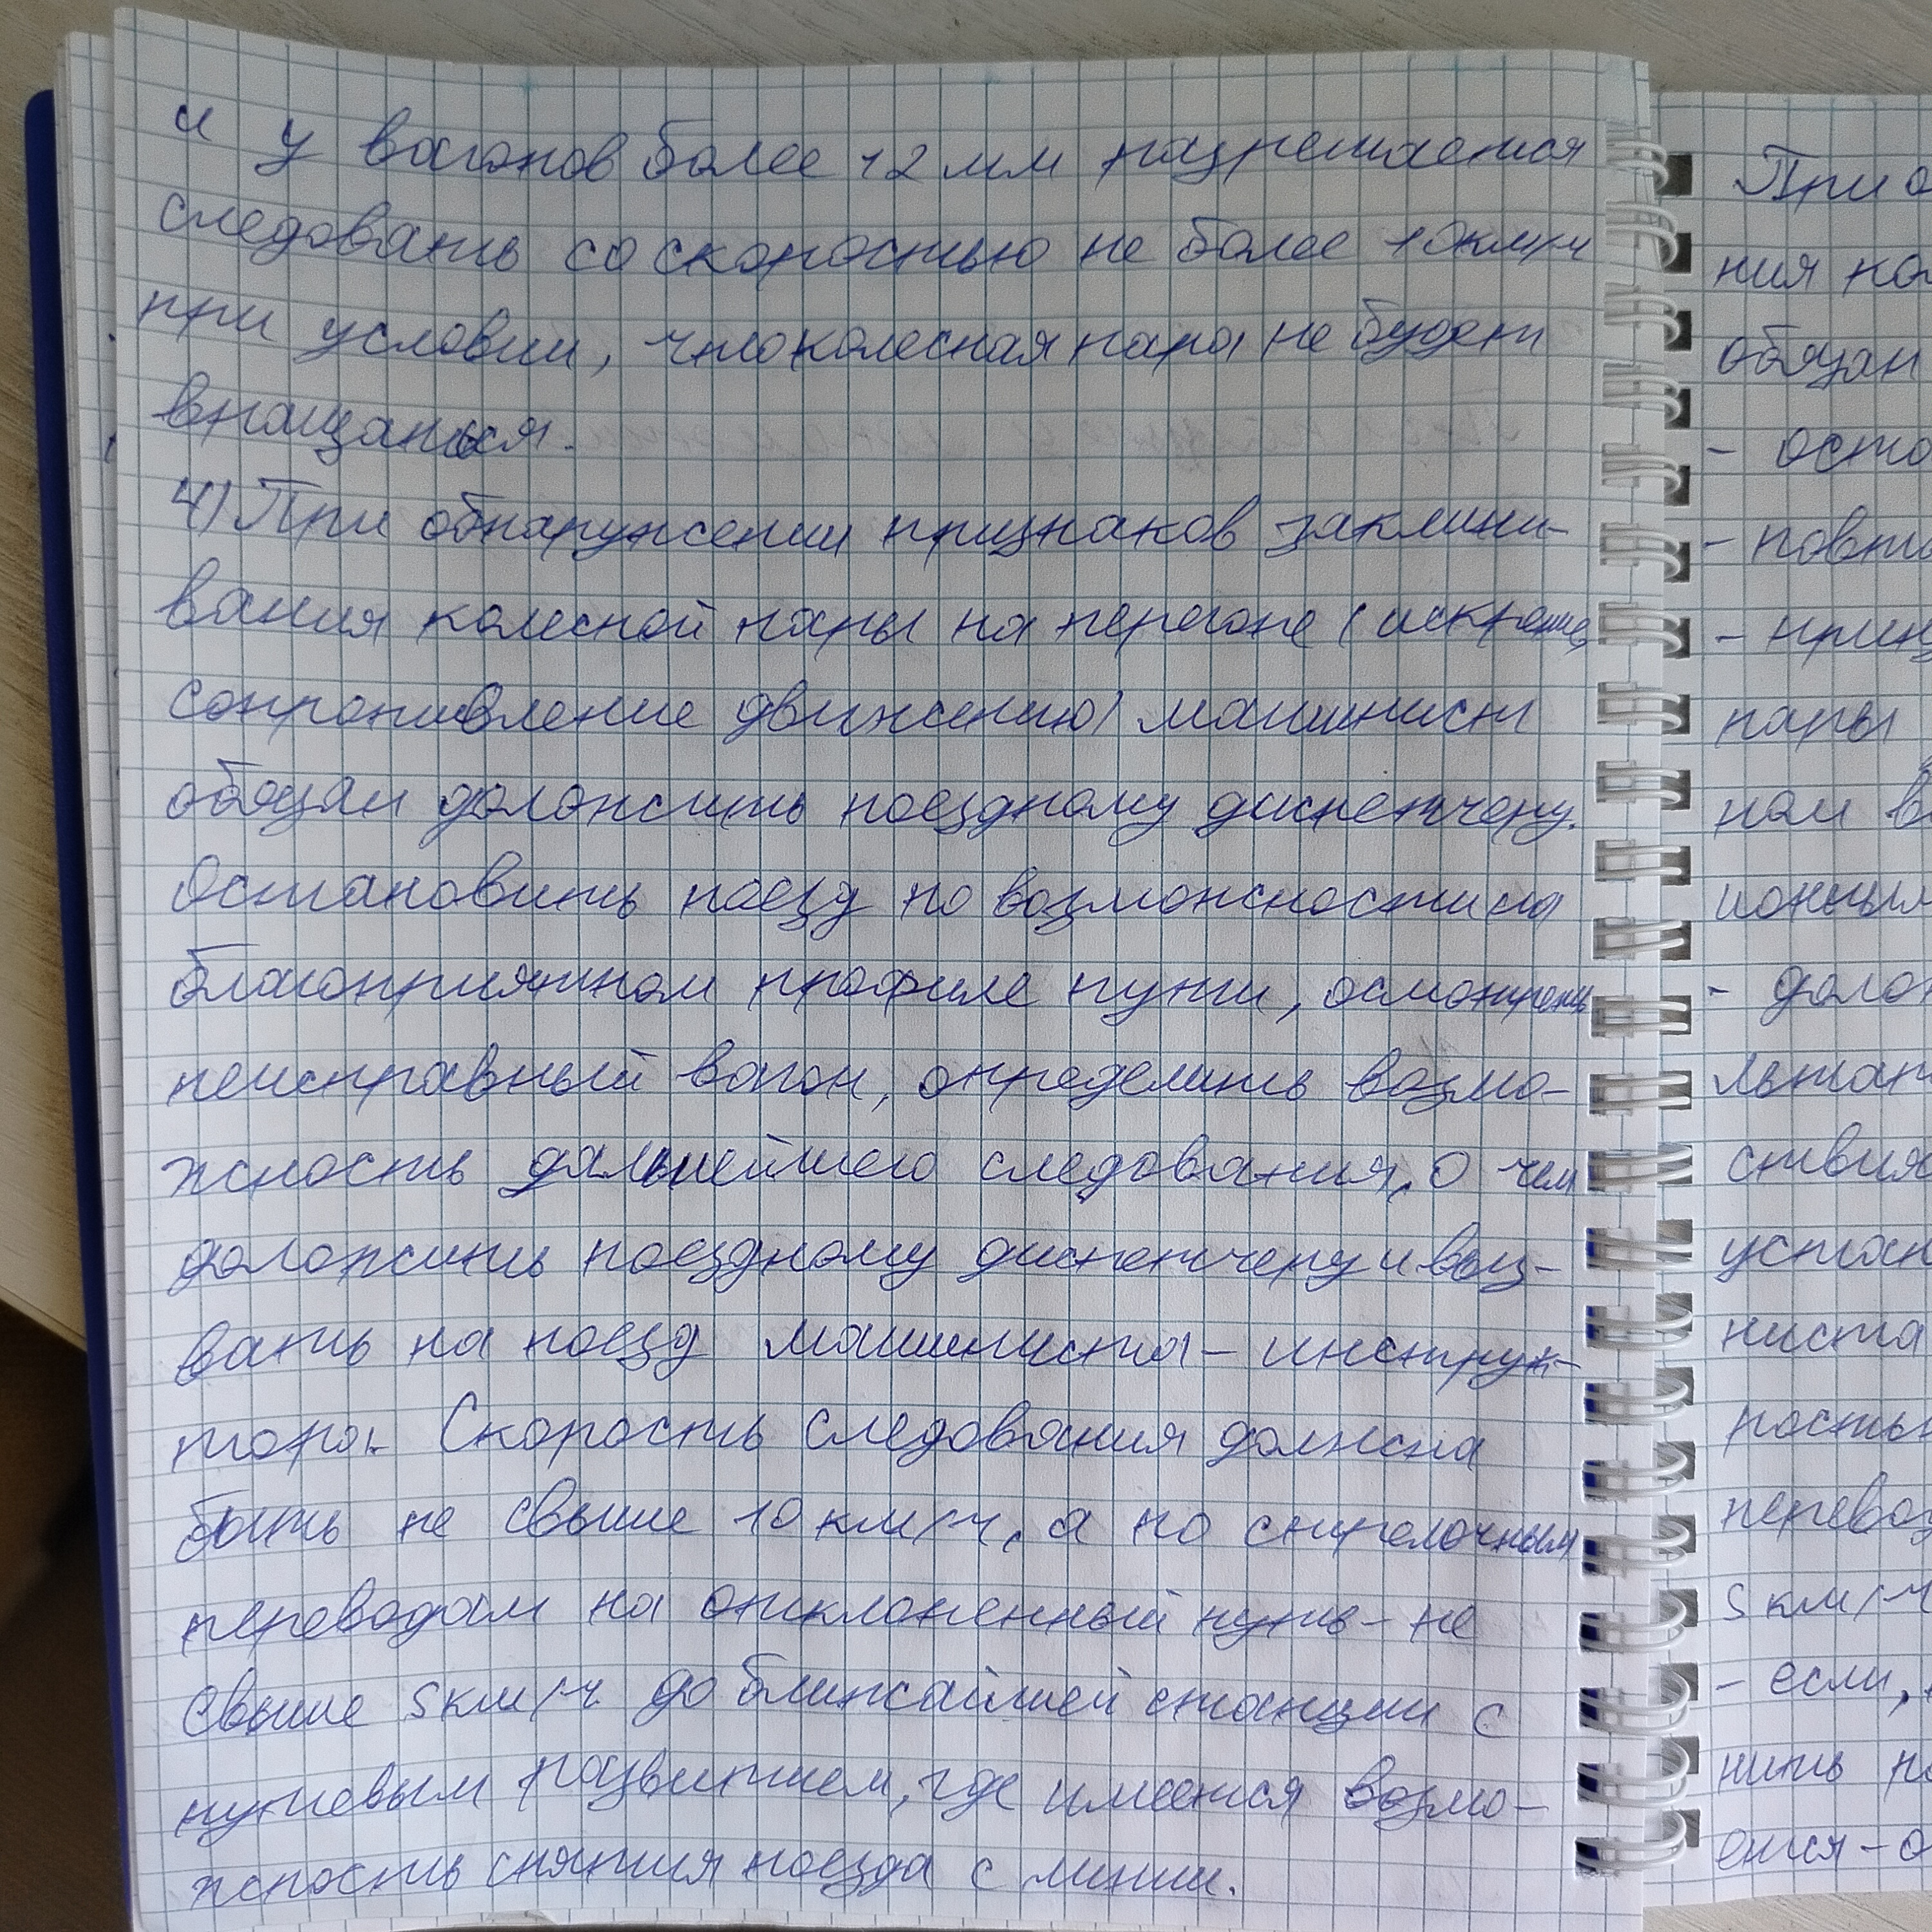 и у вагонов более 12 мм разрешается
следовать со скоростью не более 10км/ч
при условии, что колесная пара не будет
вращаться.
4) При обнаружении признаков заклини-
вания колесной пары на перегоне (искрение,
сопротивление движению) машинист
обязан доложить поездному диспетчеру.
Остановить поезд по возможности на
благоприятном профиле пути, осмотреть
неисправный вагон, определить возмо-
жность дальнейшего следования, о чем
доложить поездному диспетчеру и выз-
вать на поезд машиниста-инструк-
тора. Скорость следования должна
быть не свыше 10 км/ч, а по стрелочным
переводам на отклоненный путь - не
свыше 5 км/ч до ближайшей станции с
путевым развитием, где имеется возмо-
жность снятия поезда с линии.
При о
ния ко
обязан
- оста
- повт
- приз
пары
ном в
ионным
- долож
льтат
ствия
устан
ниста
ростью
перевод
5 км/ч
- если,
нить по
ется - о